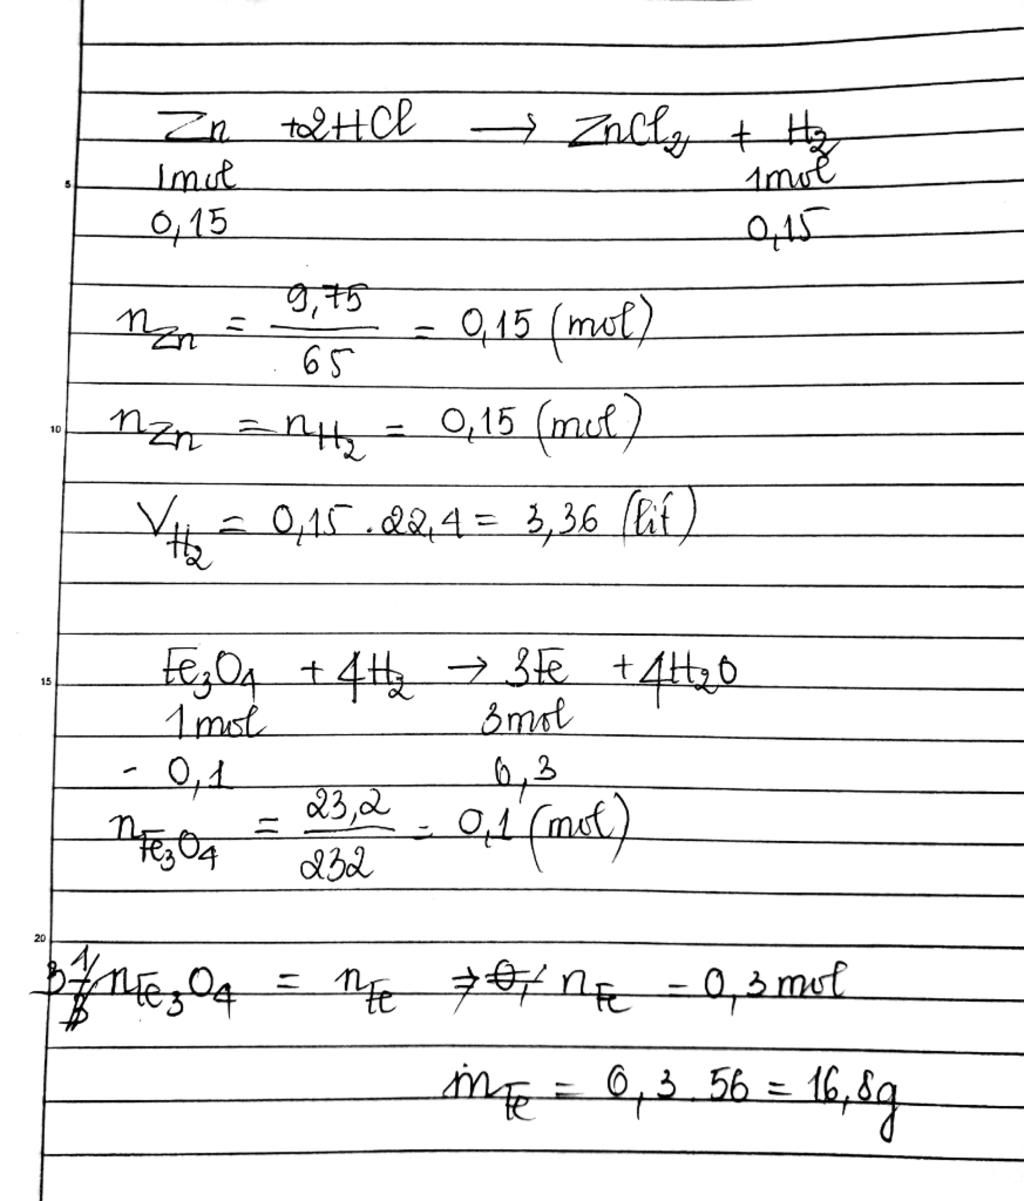 5
Zn +2HCl → ZnCl₂ + H₂
1mol 1mol
0,15 0,15
n_Zn = 9,75/65 = 0,15 (mol)
10
n_Zn = n_H₂ = 0,15 (mol)
V_H₂ = 0,15 . 22,4 = 3,36 (lít)
15
Fe₃O₄ + 4H₂ → 3Fe + 4H₂O
1mol 3mol
- 0,1 0,3
n_Fe₃O₄ = 23,2/232 = 0,1 (mol)
20
3 n_Fe₃O₄ = n_Fe ⇒ n_Fe = 0,3 mol
m_Fe = 0,3 . 56 = 16,8g